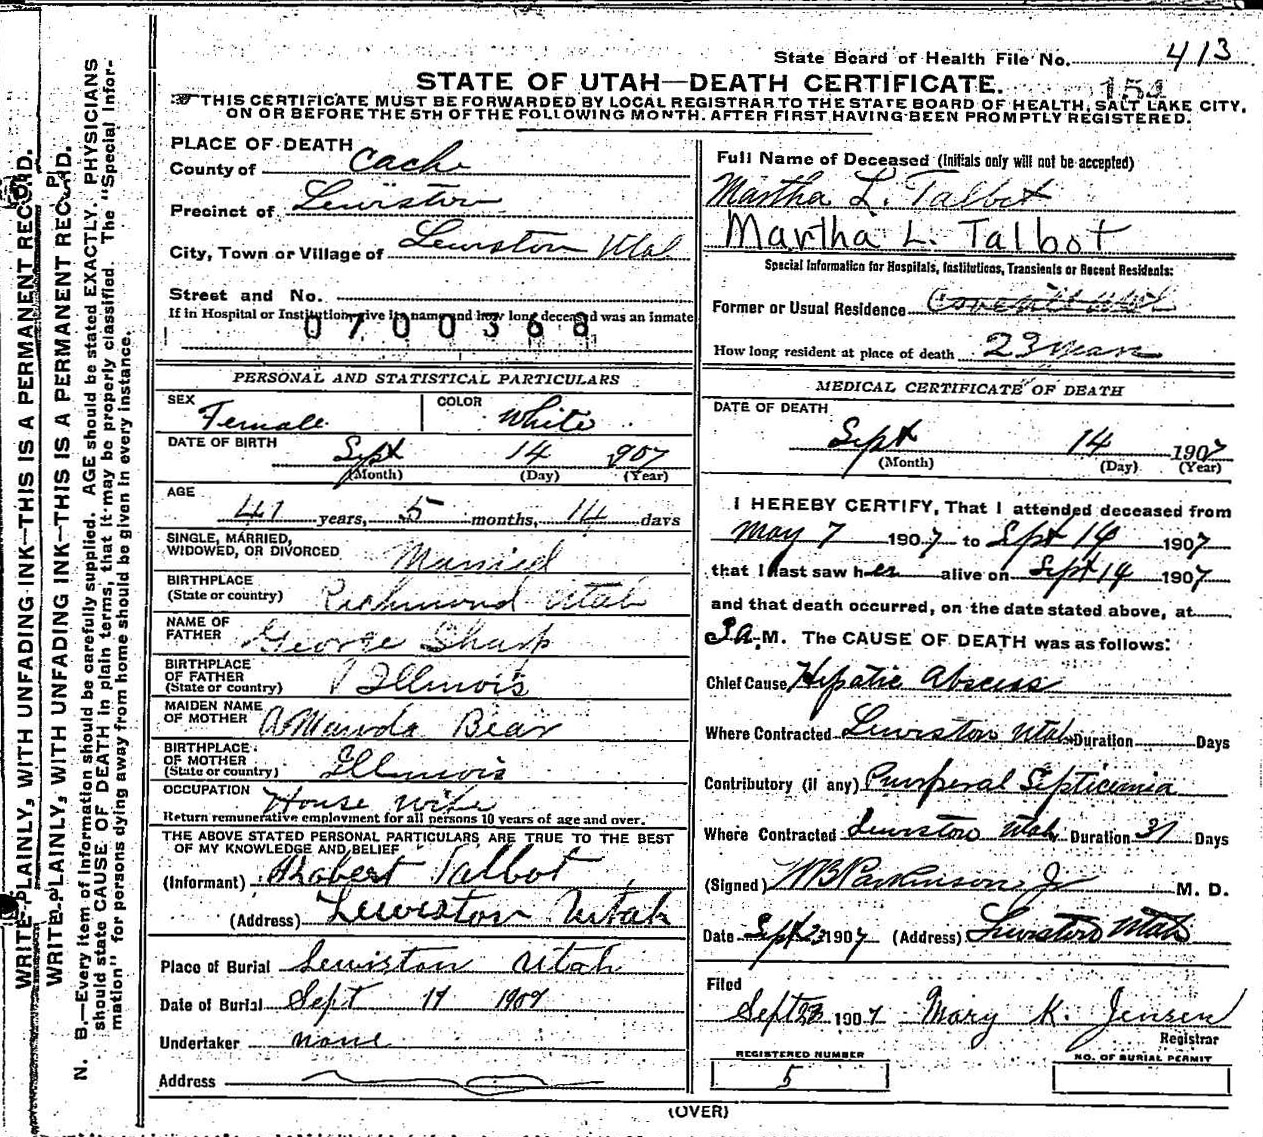 WRITE PLAINLY, WITH UNFADING INK—THIS IS A PERMANENT RECORD.
WRITE PLAINLY, WITH UNFADING INK—THIS IS A PERMANENT RECORD.
N. B.—Every item of Information should be carefully supplied. AGE should be stated EXACTLY. PHYSICIANS
should state CAUSE OF DEATH in plain terms, that it may be properly classified. The "Special Infor-
mation" for persons dying away from home should be given in every instance.
State Board of Health File No. 413
STATE OF UTAH—DEATH CERTIFICATE. 154
THIS CERTIFICATE MUST BE FORWARDED BY LOCAL REGISTRAR TO THE STATE BOARD OF HEALTH, SALT LAKE CITY,
ON OR BEFORE THE 5TH OF THE FOLLOWING MONTH. AFTER FIRST HAVING BEEN PROMPTLY REGISTERED.
PLACE OF DEATH
County of Cache
Precinct of Lewiston
City, Town or Village of Lewiston Utah
Street and No.
If in Hospital or Institution give its name and how long deceased was an inmate
0700368
PERSONAL AND STATISTICAL PARTICULARS
SEX Female COLOR White
DATE OF BIRTH Sept 14 907
(Month) (Day) (Year)
AGE
41 years, 5 months, 14 days
SINGLE, MARRIED,
WIDOWED, OR DIVORCED Married
BIRTHPLACE
(State or country) Richmond Utah
NAME OF
FATHER George Sharp
BIRTHPLACE
OF FATHER
(State or country) Illinois
MAIDEN NAME
OF MOTHER Amanda Bear
BIRTHPLACE
OF MOTHER
(State or country) Illinois
OCCUPATION House wife
Return remunerative employment for all persons 10 years of age and over.
THE ABOVE STATED PERSONAL PARTICULARS, ARE TRUE TO THE BEST
OF MY KNOWLEDGE AND BELIEF
(Informant) Robert Talbot
(Address) Lewiston Utah
Place of Burial Lewiston Utah
Date of Burial Sept 17 1907
Undertaker none
Address
Full Name of Deceased (Initials only will not be accepted)
Martha L. Talbot
Martha L. Talbot
Special Information for Hospitals, Institutions, Transients or Recent Residents:
Former or Usual Residence
How long resident at place of death 23 years
MEDICAL CERTIFICATE OF DEATH
DATE OF DEATH
Sept 14 1907
(Month) (Day) (Year)
I HEREBY CERTIFY, That I attended deceased from
May 7 1907 to Sept 14 1907
that I last saw her alive on Sept 14 1907
and that death occurred, on the date stated above, at
3 a. M. The CAUSE OF DEATH was as follows:
Chief Cause Hepatic Abscess
Where Contracted Lewiston Utah Duration Days
Contributory (if any) Puerperal Septicemia
Where Contracted Lewiston Utah Duration 31 Days
(Signed) WB Parkinson Jr M. D.
Date Sept 23 1907 (Address) Lewiston Utah
Filed
Sept 23 1907 Mary K. Jensen
Registrar
REGISTERED NUMBER
5
NO. OF BURIAL PERMIT
(OVER)